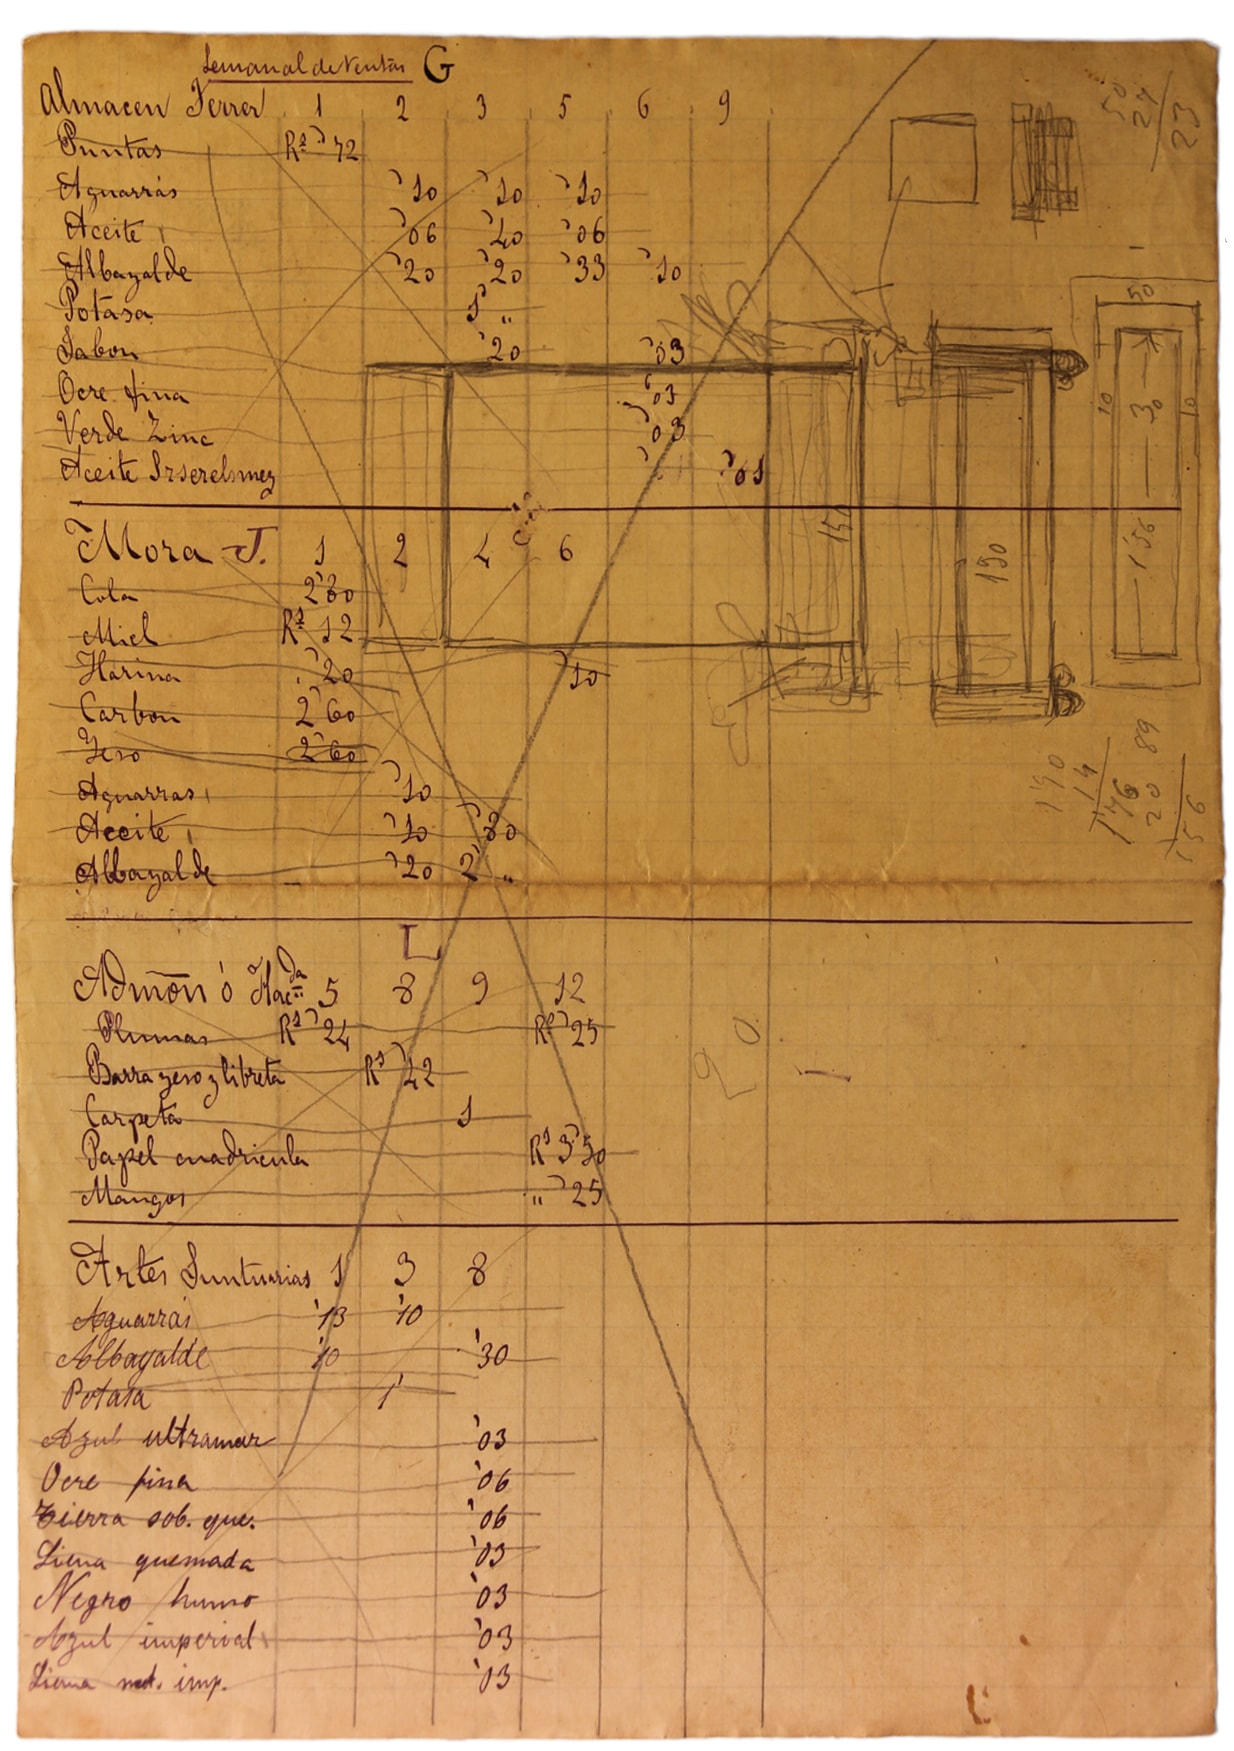 Semanal de Ventas G
Almacen Ferrer 1 2 3 5 6 9
Puntas Rs ’72
Aguarrás ’10 ’10 ’10
Aceite ’06 ’40 ’06
Albayalde ’20 ’20 ’33 ’10
Potasa 1’ „
Jabon ’20 ’03
Ocre fina ’03
Verde Zinc ’03
Aceite ’01
Mora J. 1 2 4 6
Cola 2’80
Miel Rs 12
Harina ’20 ’10
Carbon 2’60
Yeso 2’60
Aguarras ’10
Aceite ’10 ’80
Albayalde ’20 2’ „
L
Admōn ó Hacda 5 8 9 12
Plumas Rs ’24 Rs ’25
Barra yeso y libreta Rs ’42
Carpeta 1
Papel cuadricula Rs 3’50
Mangos „ ’25
Artes Suntuarias 1 3 8
Aguarrás ’13 ’10
Albayalde ’10 ’30
Potasa 1’
Azul ultramar ’03
Ocre fina ’06
Tierra sob. que. ’06
Siena quemada ’03
Negro humo ’03
Azul imperial ’03
Siena nat. imp. ’03
50
27
23
50
10 30 10
1’56
150
190
14
176
20
156
89